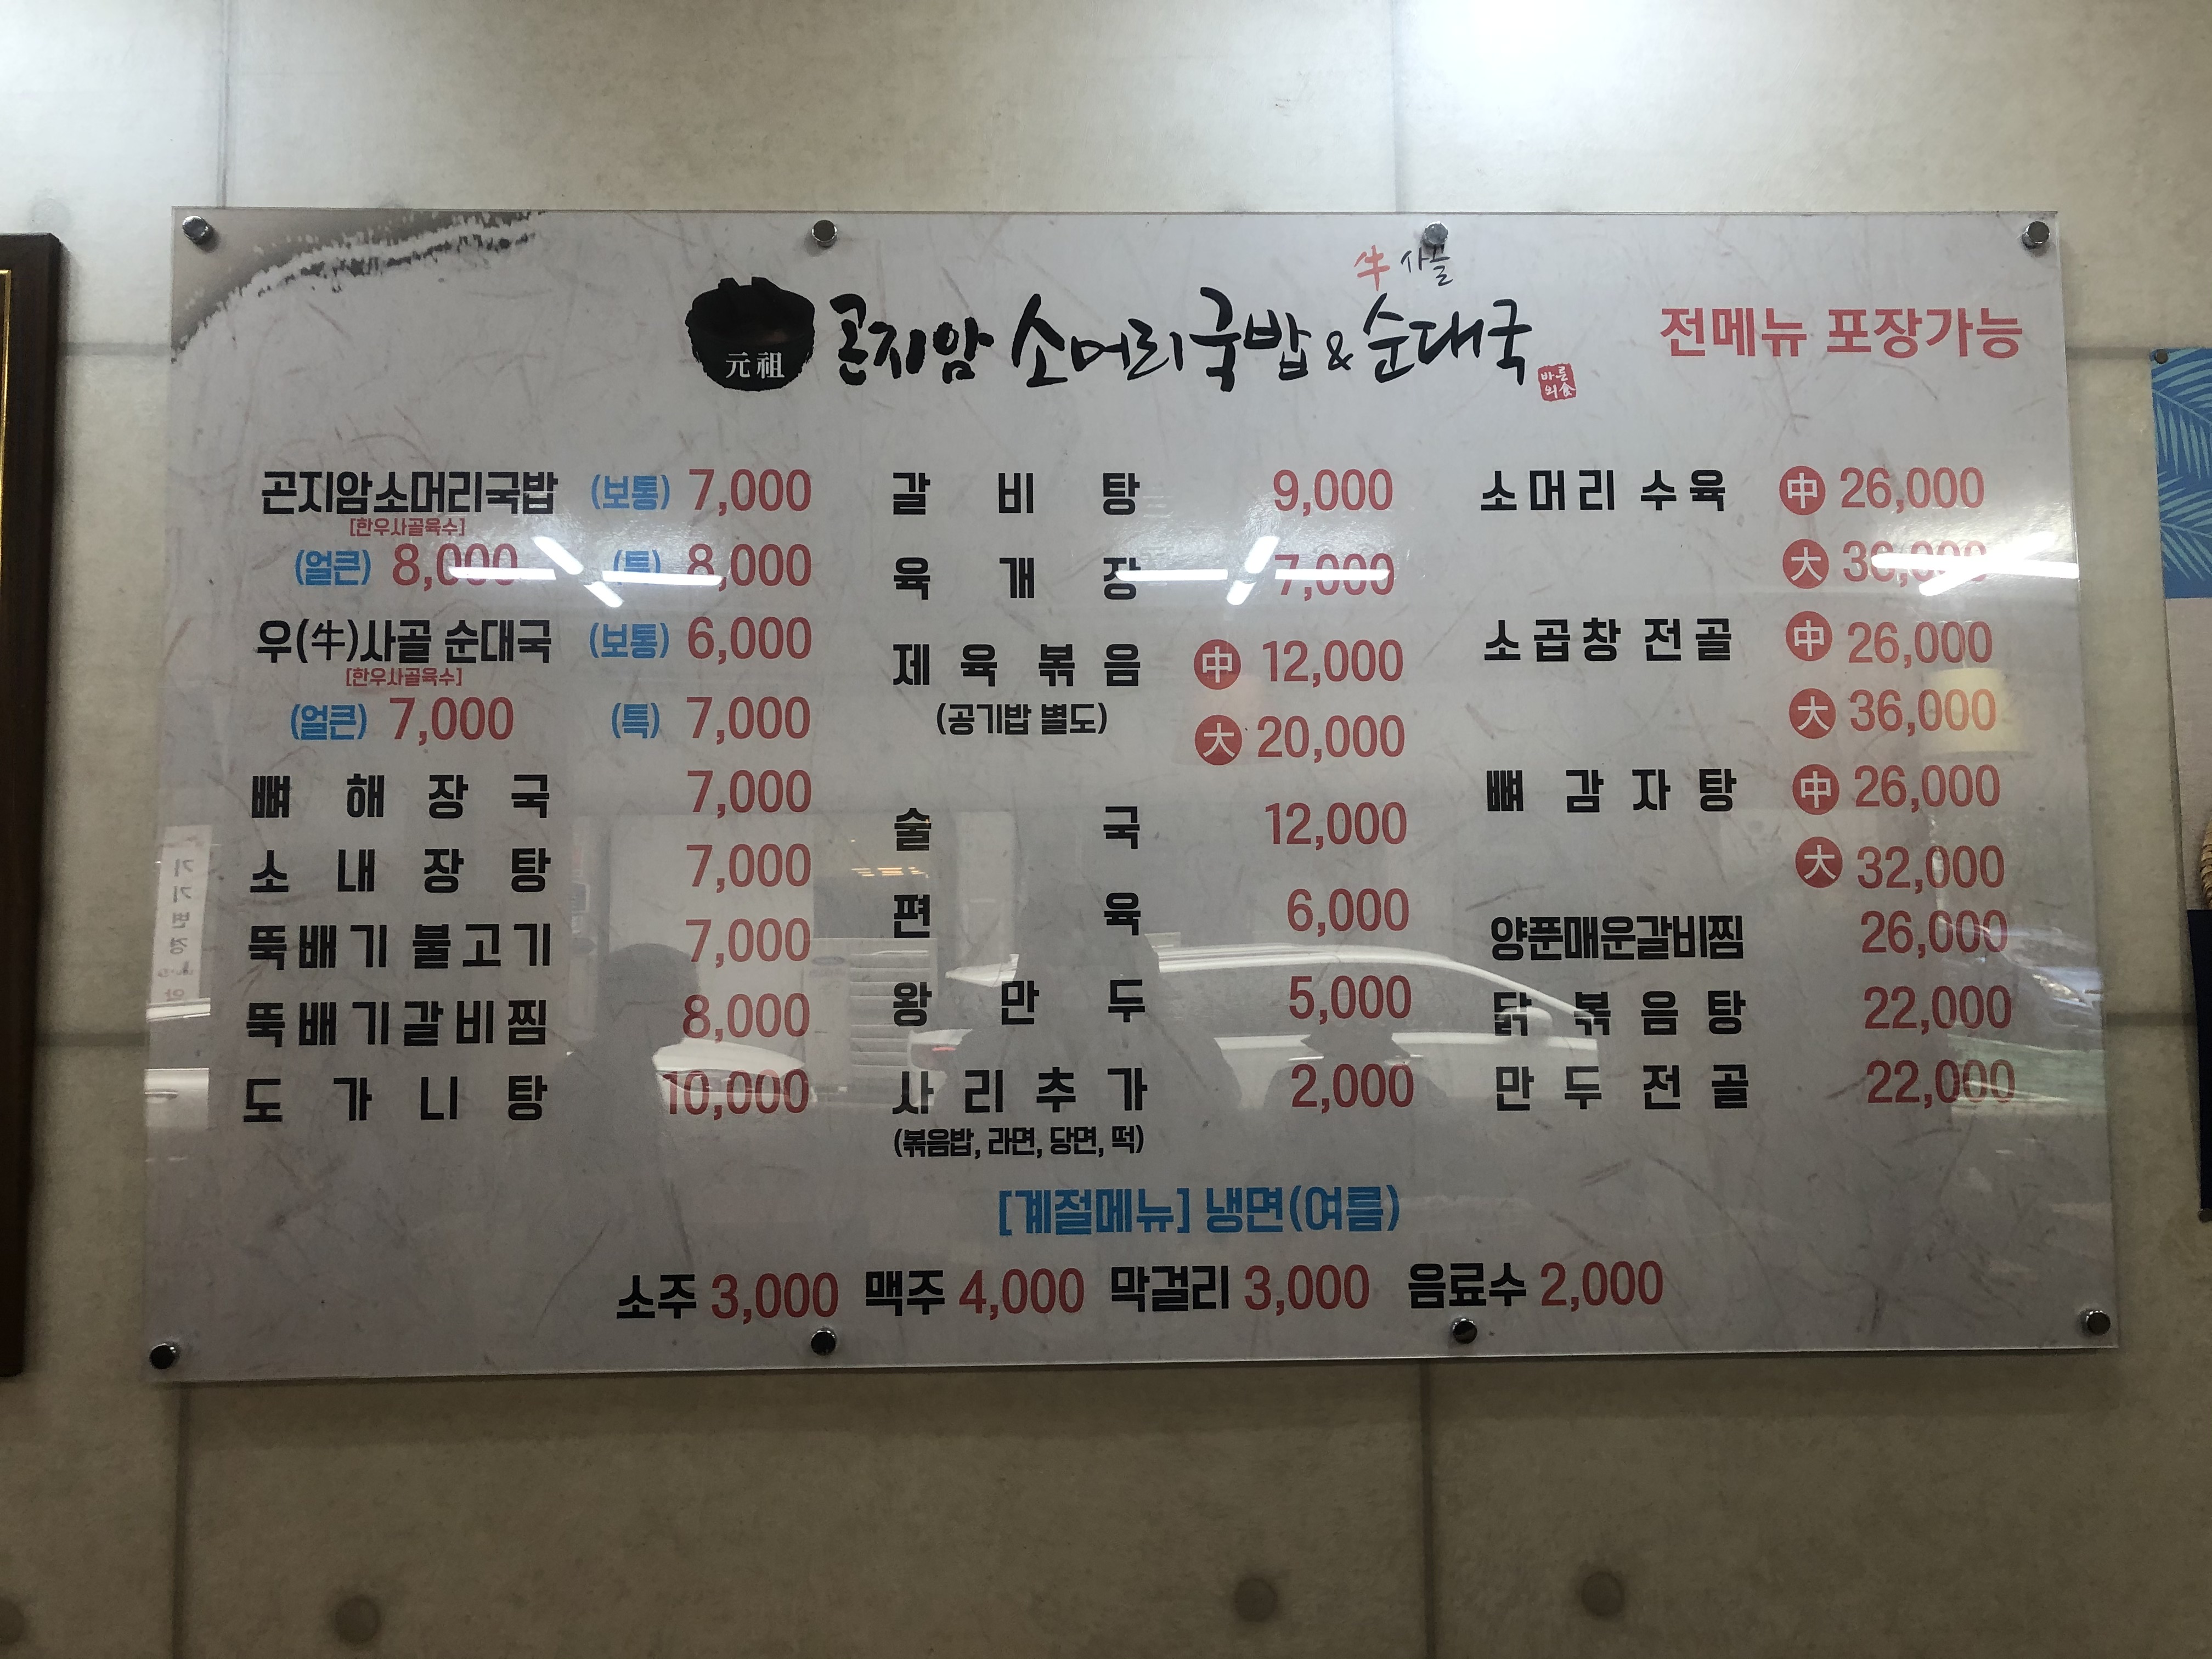 牛 사골
元祖 곤지암 소머리국밥 & 순대국
바른
외食
전메뉴 포장가능
곤지암소머리국밥 (보통) 7,000
[한우사골육수]
(얼큰) 8,000 (특) 8,000
우(牛)사골 순대국 (보통) 6,000
[한우사골육수]
(얼큰) 7,000 (특) 7,000
뼈해장국 7,000
소내장탕 7,000
뚝배기 불고기 7,000
뚝배기갈비찜 8,000
도가니탕 10,000
갈비탕 9,000
육개장 7,000
제육볶음 中 12,000
(공기밥 별도) 大 20,000
술국 12,000
편육 6,000
왕만두 5,000
사리추가 2,000
(볶음밥, 라면, 당면, 떡)
소머리 수육 中 26,000
大
소곱창 전골 中 26,000
大 36,000
뼈감자탕 中 26,000
大 32,000
양푼매운갈비찜 26,000
닭볶음탕 22,000
만두전골 22,000
[계절메뉴] 냉면(여름)
소주 3,000 맥주 4,000 막걸리 3,000 음료수 2,000